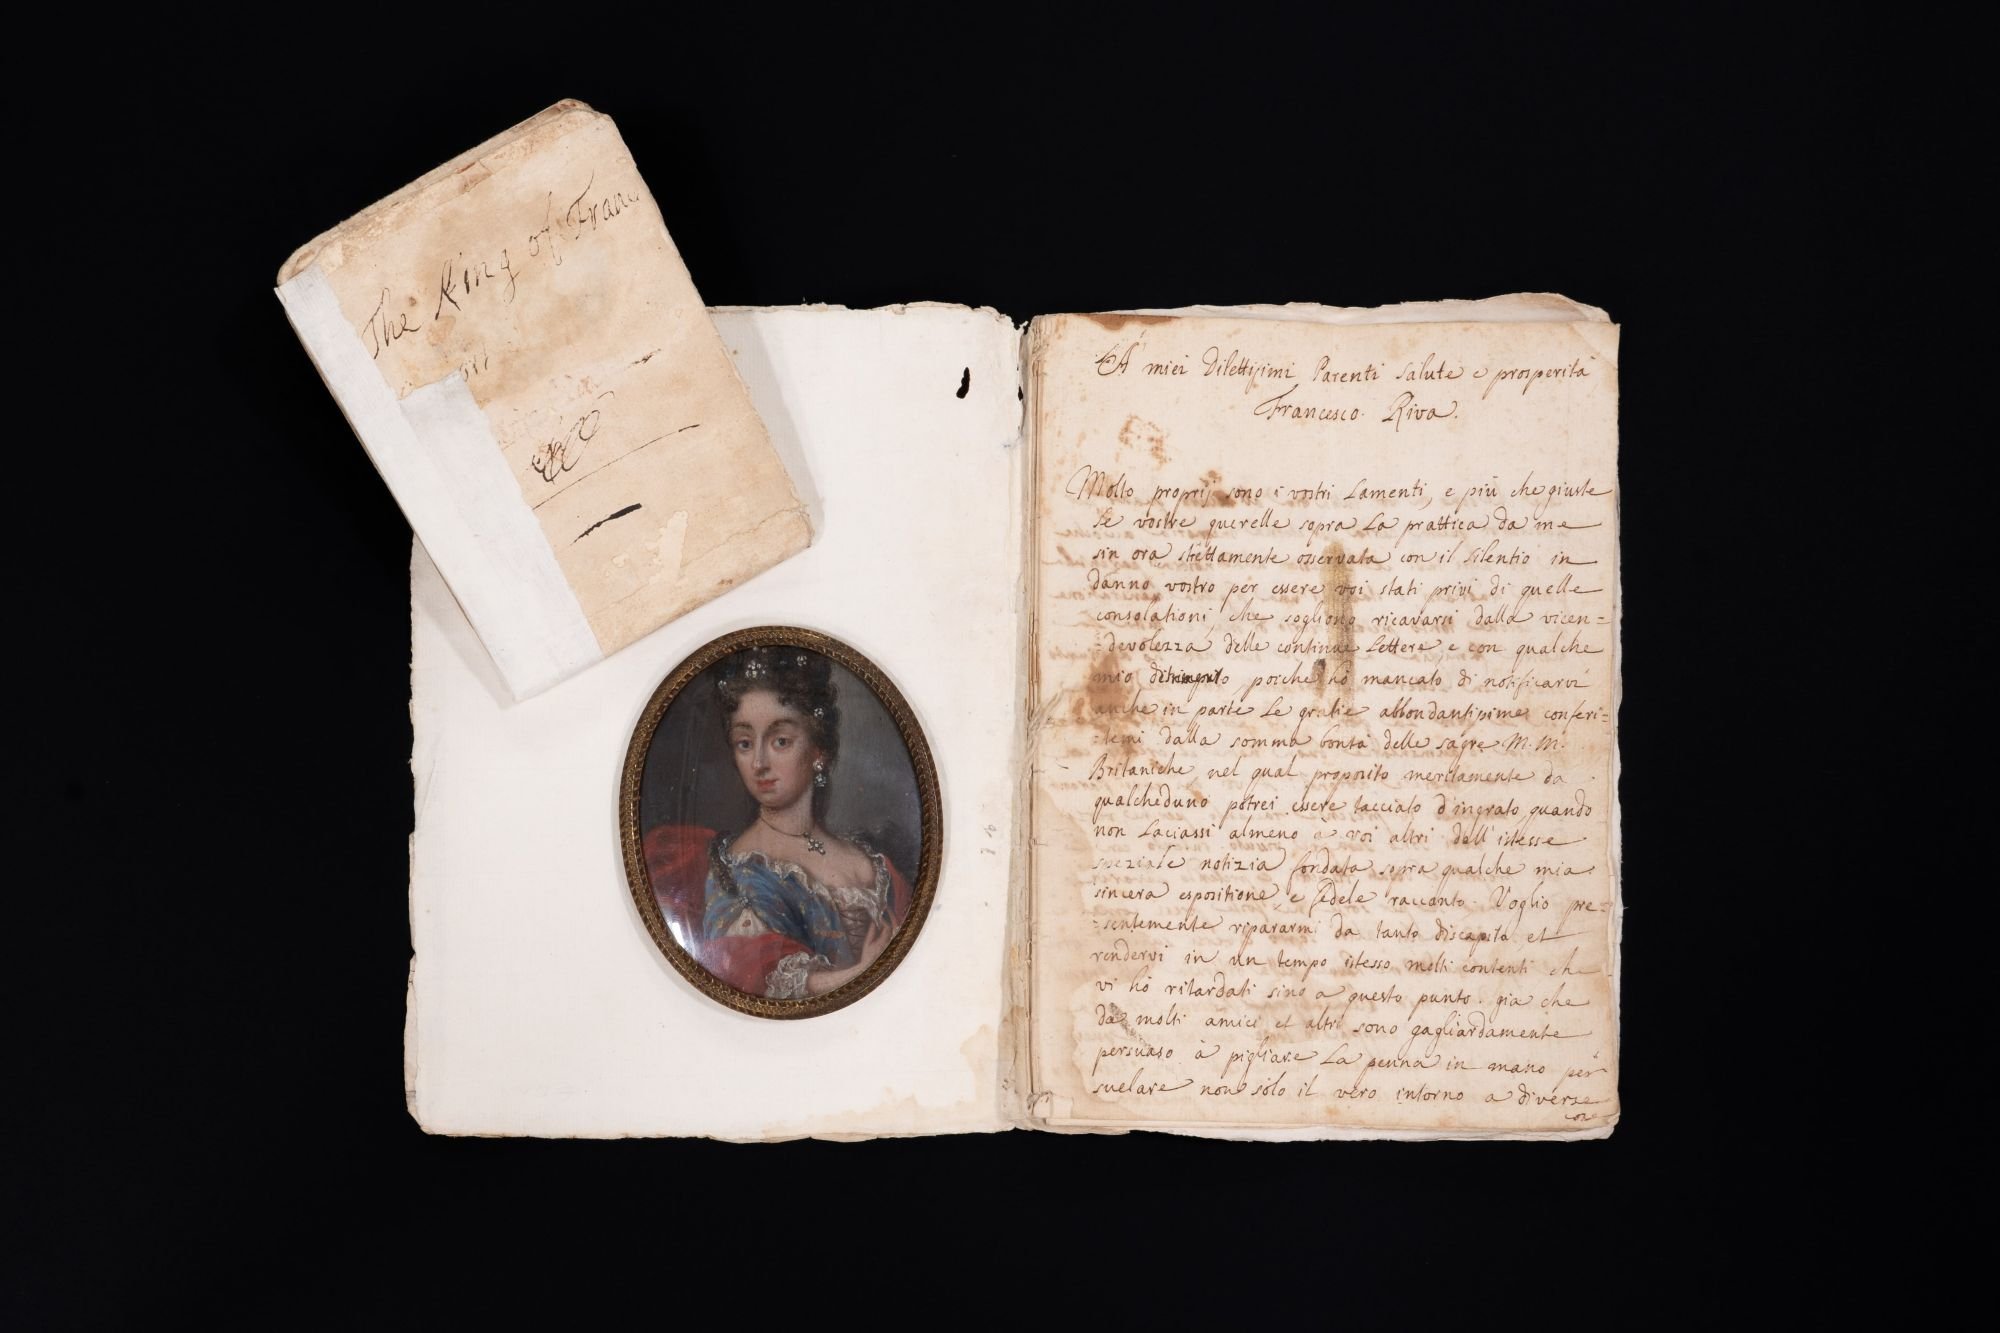 The King of Franc
À miei Dilettissimi Parenti salute e prosperità
Francesco Riva.
Molto proprij sono i vostri Lamenti, e più che giuste
le vostre querelle sopra La prattica da me
sin ora strettamente osservata con il silentio in
danno vostro per essere voi stati privi di quelle
consolationi, che sogliono ricavarsi dalla vicen=
=devolezza delle continue Lettere, e con qualche
mio poiche hò mancato di notificarvi
anche in parte Le gratie abbondantissime conferi=
=temi dalla somma bontà delle sagre M.M.
Britaniche, nel qual proposito meritamente da
qualcheduno potrei essere tacciato d'ingrato, quando
non Laciassi almeno à voi altri dell'istesse
speziale notizia fondata sopra qualche mia
sincera espositione, e fedele racconto. Voglio pre=
=sentemente ripararmi da tanto discapito et
rendervi in un tempo istesso molti contenti che
vi hò ritardati sino a questo punto. già che
da molti amici et altri sono gagliardamente
persuaso à pigliare La penna in mano per
suelare non sólo il vero intorno a diverse
cose